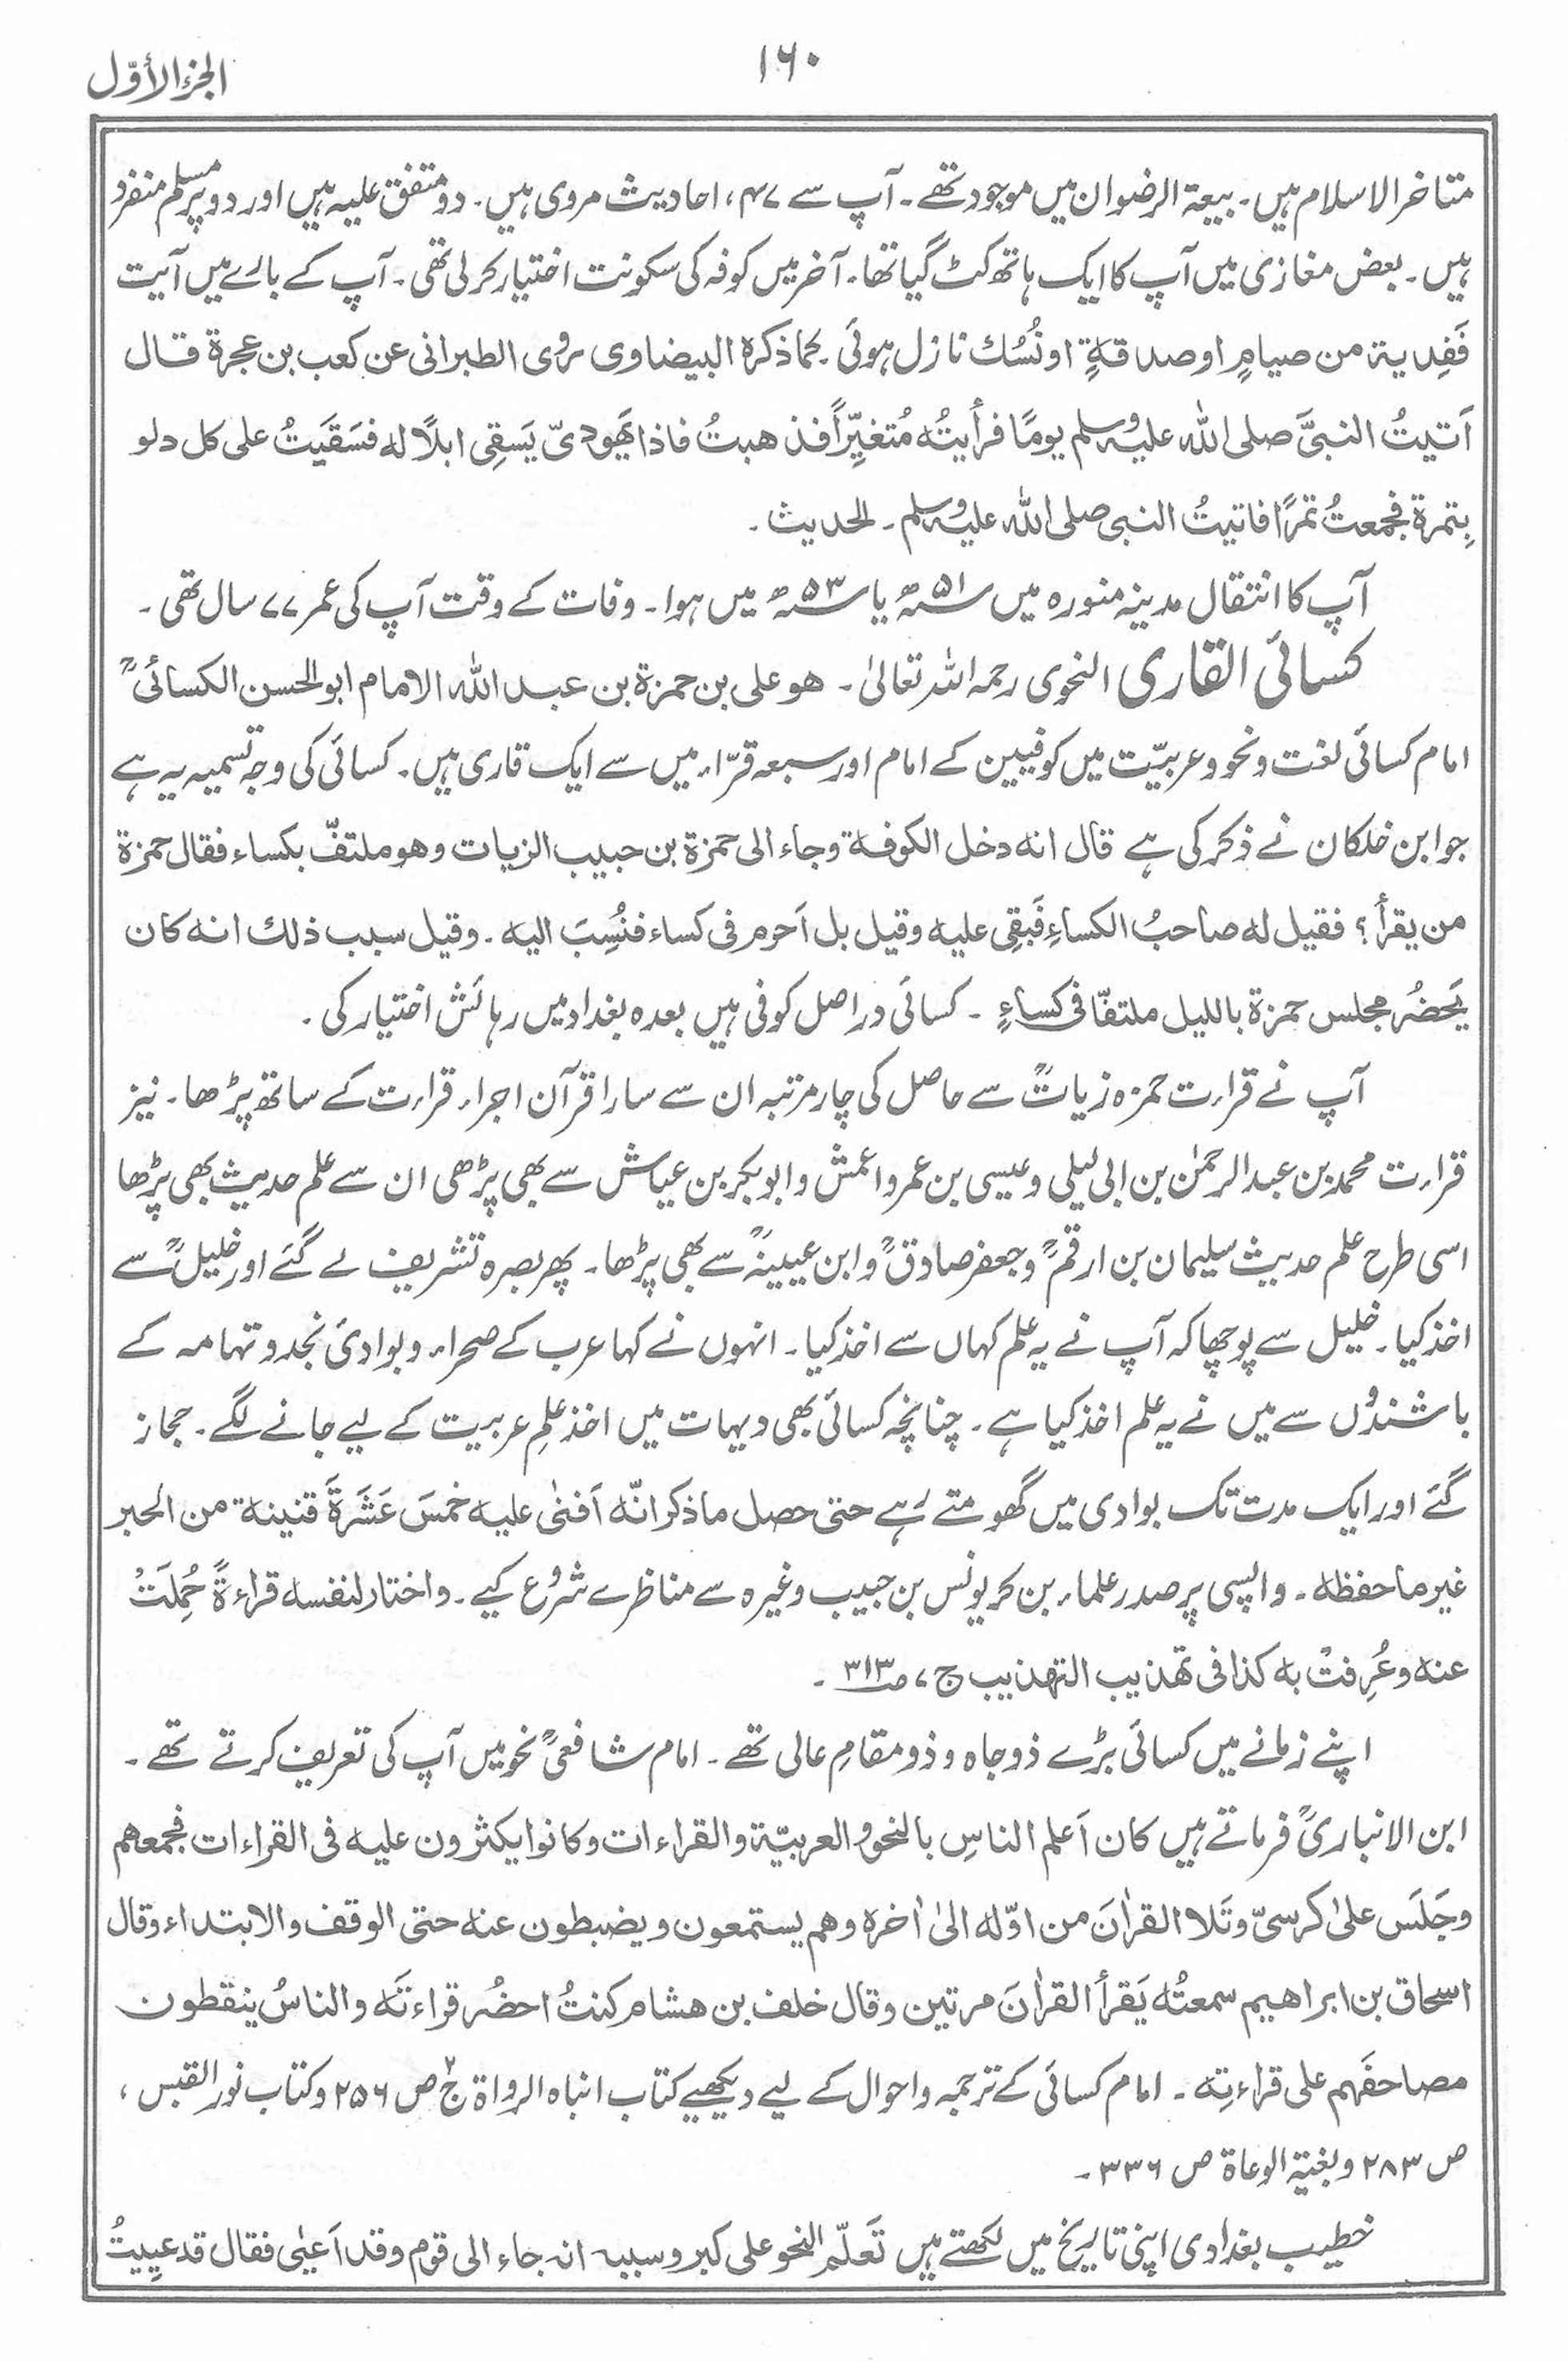 ۱۶۰
الجزء الأوّل
متاخر الاسلام ہیں۔ بیعۃ الرضوان میں موجود تھے۔ آپ سے ۴۷، احادیث مروی ہیں۔ دو متفق علیہ ہیں اور دو پر مسلم منفرد
ہیں۔ بعض مغازی میں آپ کا ایک ہاتھ کٹ گیا تھا۔ آخر میں کوفہ کی سکونت اختیار کرلی تھی۔ آپ کے بارے میں آیت
فَفِدیۃ من صیامٍ او صدقۃٍ او نُسُك نازل ہوئی۔ کما ذکرہ البیضاوی روی الطبرانی عن کعب بن عجرۃ قال
اَتیتُ النبیَّ صلی اللہ علیہ وسلم یومًا فرأیتُہ مُتغیِّراً فذھبتُ فاذا یَھودیّ یَسقِی ابلًا لہ فسَقَیَتُ علی کل دلو
بِتمرۃ فجمعتُ تمرًا فاتیتُ النبی صلی اللہ علیہ وسلم۔ الحدیث۔
آپ کا انتقال مدینہ منورہ میں ۵۱؁ھ یا ۵۳؁ھ میں ہوا۔ وفات کے وقت آپ کی عمر ۷۷ سال تھی۔
کسائی القاری النحوی رحمہ اللہ تعالیٰ۔ ھو علی بن حمزۃ بن عبد اللہ الامام ابو الحسن الکسائیؒ
امام کسائی لغت و نحو و عربیّت میں کوفیین کے امام اور سبعہ قرّاء میں سے ایک قاری ہیں۔ کسائی کی وجہ تسمیہ یہ ہے
جو ابن خلکان نے ذکر کی ہے قال انہ دخل الکوفۃ وجاء الی حمزۃ بن حبیب الزیات وھو ملتفّ بکساء فقال حمزۃ
من یقرأ؟ فقیل لہ صاحبُ الکساءِ فَبَقِی علیہ وقیل بل اَحرم فی کساء فنُسِبَ الیہ۔ وقیل سبب ذلك انہ کان
یَحضُر مجلس حمزۃ باللیل ملتفّا فی کساءٍ۔ کسائی دراصل کوفی ہیں بعدہ بغداد میں رہائش اختیار کی۔
آپ نے قراءت حمزہ زیاتؒ سے حاصل کی چار مرتبہ ان سے سارا قرآن اجراء قراءت کے ساتھ پڑھا۔ نیز
قراءت محمد بن عبدالرحمٰن بن ابی لیلی و عیسی بن عمر و اعمش و ابوبکر بن عیاش سے بھی پڑھی ان سے علم حدیث بھی پڑھا
اسی طرح علم حدیث سلیمان بن ارقمؒ و جعفر صادقؒ و ابن عیینہؒ سے بھی پڑھا۔ پھر بصرہ تشریف لے گئے اور خلیلؒ سے
اخذ کیا۔ خلیل سے پوچھا کہ آپ نے یہ علم کہاں سے اخذ کیا۔ انہوں نے کہا عرب کے صحراء و بوادیٔ نجد و تہامہ کے
باشندوں سے میں نے یہ علم اخذ کیا ہے۔ چنانچہ کسائی بھی دیہات میں اخذِ علمِ عربیت کے لیے جانے لگے۔ حجاز
گئے اور ایک مدت تک بوادی میں گھومتے رہے حتی حصل ما ذکر انّہ اَفنیٰ علیہ خمسَ عَشَرۃَ قنینۃ من الحبر
غیر ما حفظہ۔ واپسی پر صدر علماء بن کر یونس بن حبیب وغیرہ سے مناظرے شروع کیے۔ واختار لنفسہ قراءۃً حُمِلَتْ
عنہ وعُرِفتْ بہ کذا فی تھذیب التھذیب ج ۷ ص۳۱۳۔
اپنے زمانے میں کسائی بڑے ذوجاہ و ذو مقامِ عالی تھے۔ امام شافعیؒ نحو میں آپ کی تعریف کرتے تھے۔
ابن الانباریؒ فرماتے ہیں کان اَعلم الناسِ بالنحو و العربیّۃ والقراءات وکانوا یکثرون علیہ فی القراءات فجمعھم
وجَلَسَ علیٰ کرسیّ وتَلا القراٰنَ من اوّلہ الیٰ اٰخرہ وھم یستمعون ویضبطون عنہ حتی الوقف والابتداء وقال
اسحاق بن ابراھیم سمعتُہ یَقرأ القراٰنَ مرتین وقال خلف بن ھشام کنتُ احضُر قراءتَہ والناسُ ینقطون
مصاحفَہم علی قراءتِہ۔ امام کسائی کے ترجمہ و احوال کے لیے دیکھیے کتاب انباہ الرواۃ ج۲ ص ۲۵۶ و کتاب نور القبس،
ص ۲۸۳ و بغیۃ الوعاۃ ص ۳۳۶۔
خطیب بغدادی اپنی تاریخ میں لکھتے ہیں تَعَلّم النحو علی کبر وسببہ انہ جاء الی قوم وقد اَعیٰی فقال قد عیِیتُ